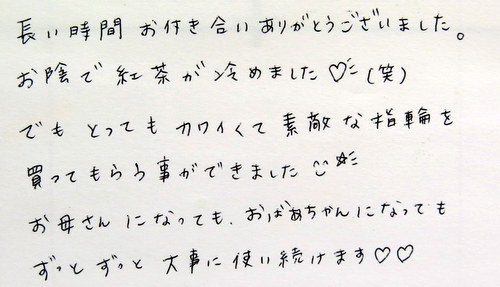 長い時間 お付き合いありがとうございました。
お陰で紅茶が冷めました♡(笑)
でもとってもカワイくて素敵な指輪を
買ってもらう事ができました
お母さんになっても、おばあちゃんになっても
ずっとずっと大事に使い続けます♡♡